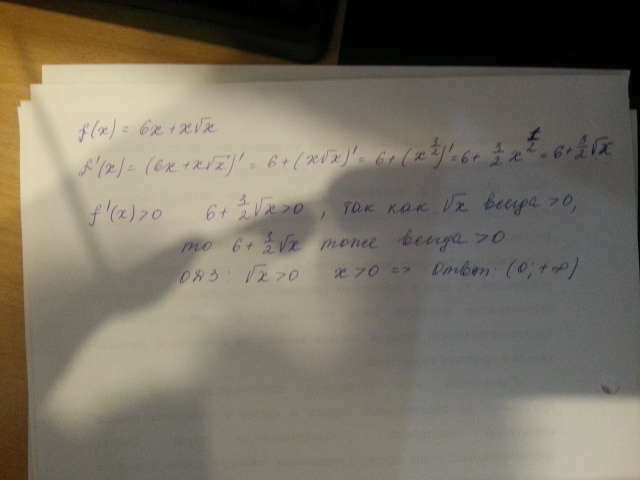 f(x) = 6x + x√x
f'(x) = (6x + x√x)' = 6 + (x√x)' = 6 + (x^{3/2})' = 6 + 3/2 x^{1/2} = 6 + 3/2 √x
f'(x) > 0 6 + 3/2 √x > 0 , так как √x всегда > 0,
то 6 + 3/2 √x тоже всегда > 0
ОДЗ: √x > 0 x > 0 => Ответ: (0; +∞)